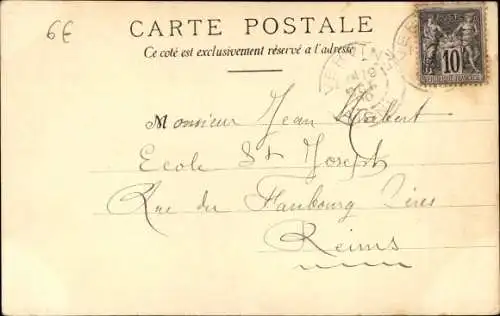 6E
CARTE POSTALE
Ce coté est exclusivement réservé a l'adresse
10
Monsieur Jean
Ecole St Joseph
Rue du Faubourg Cérès
Reims